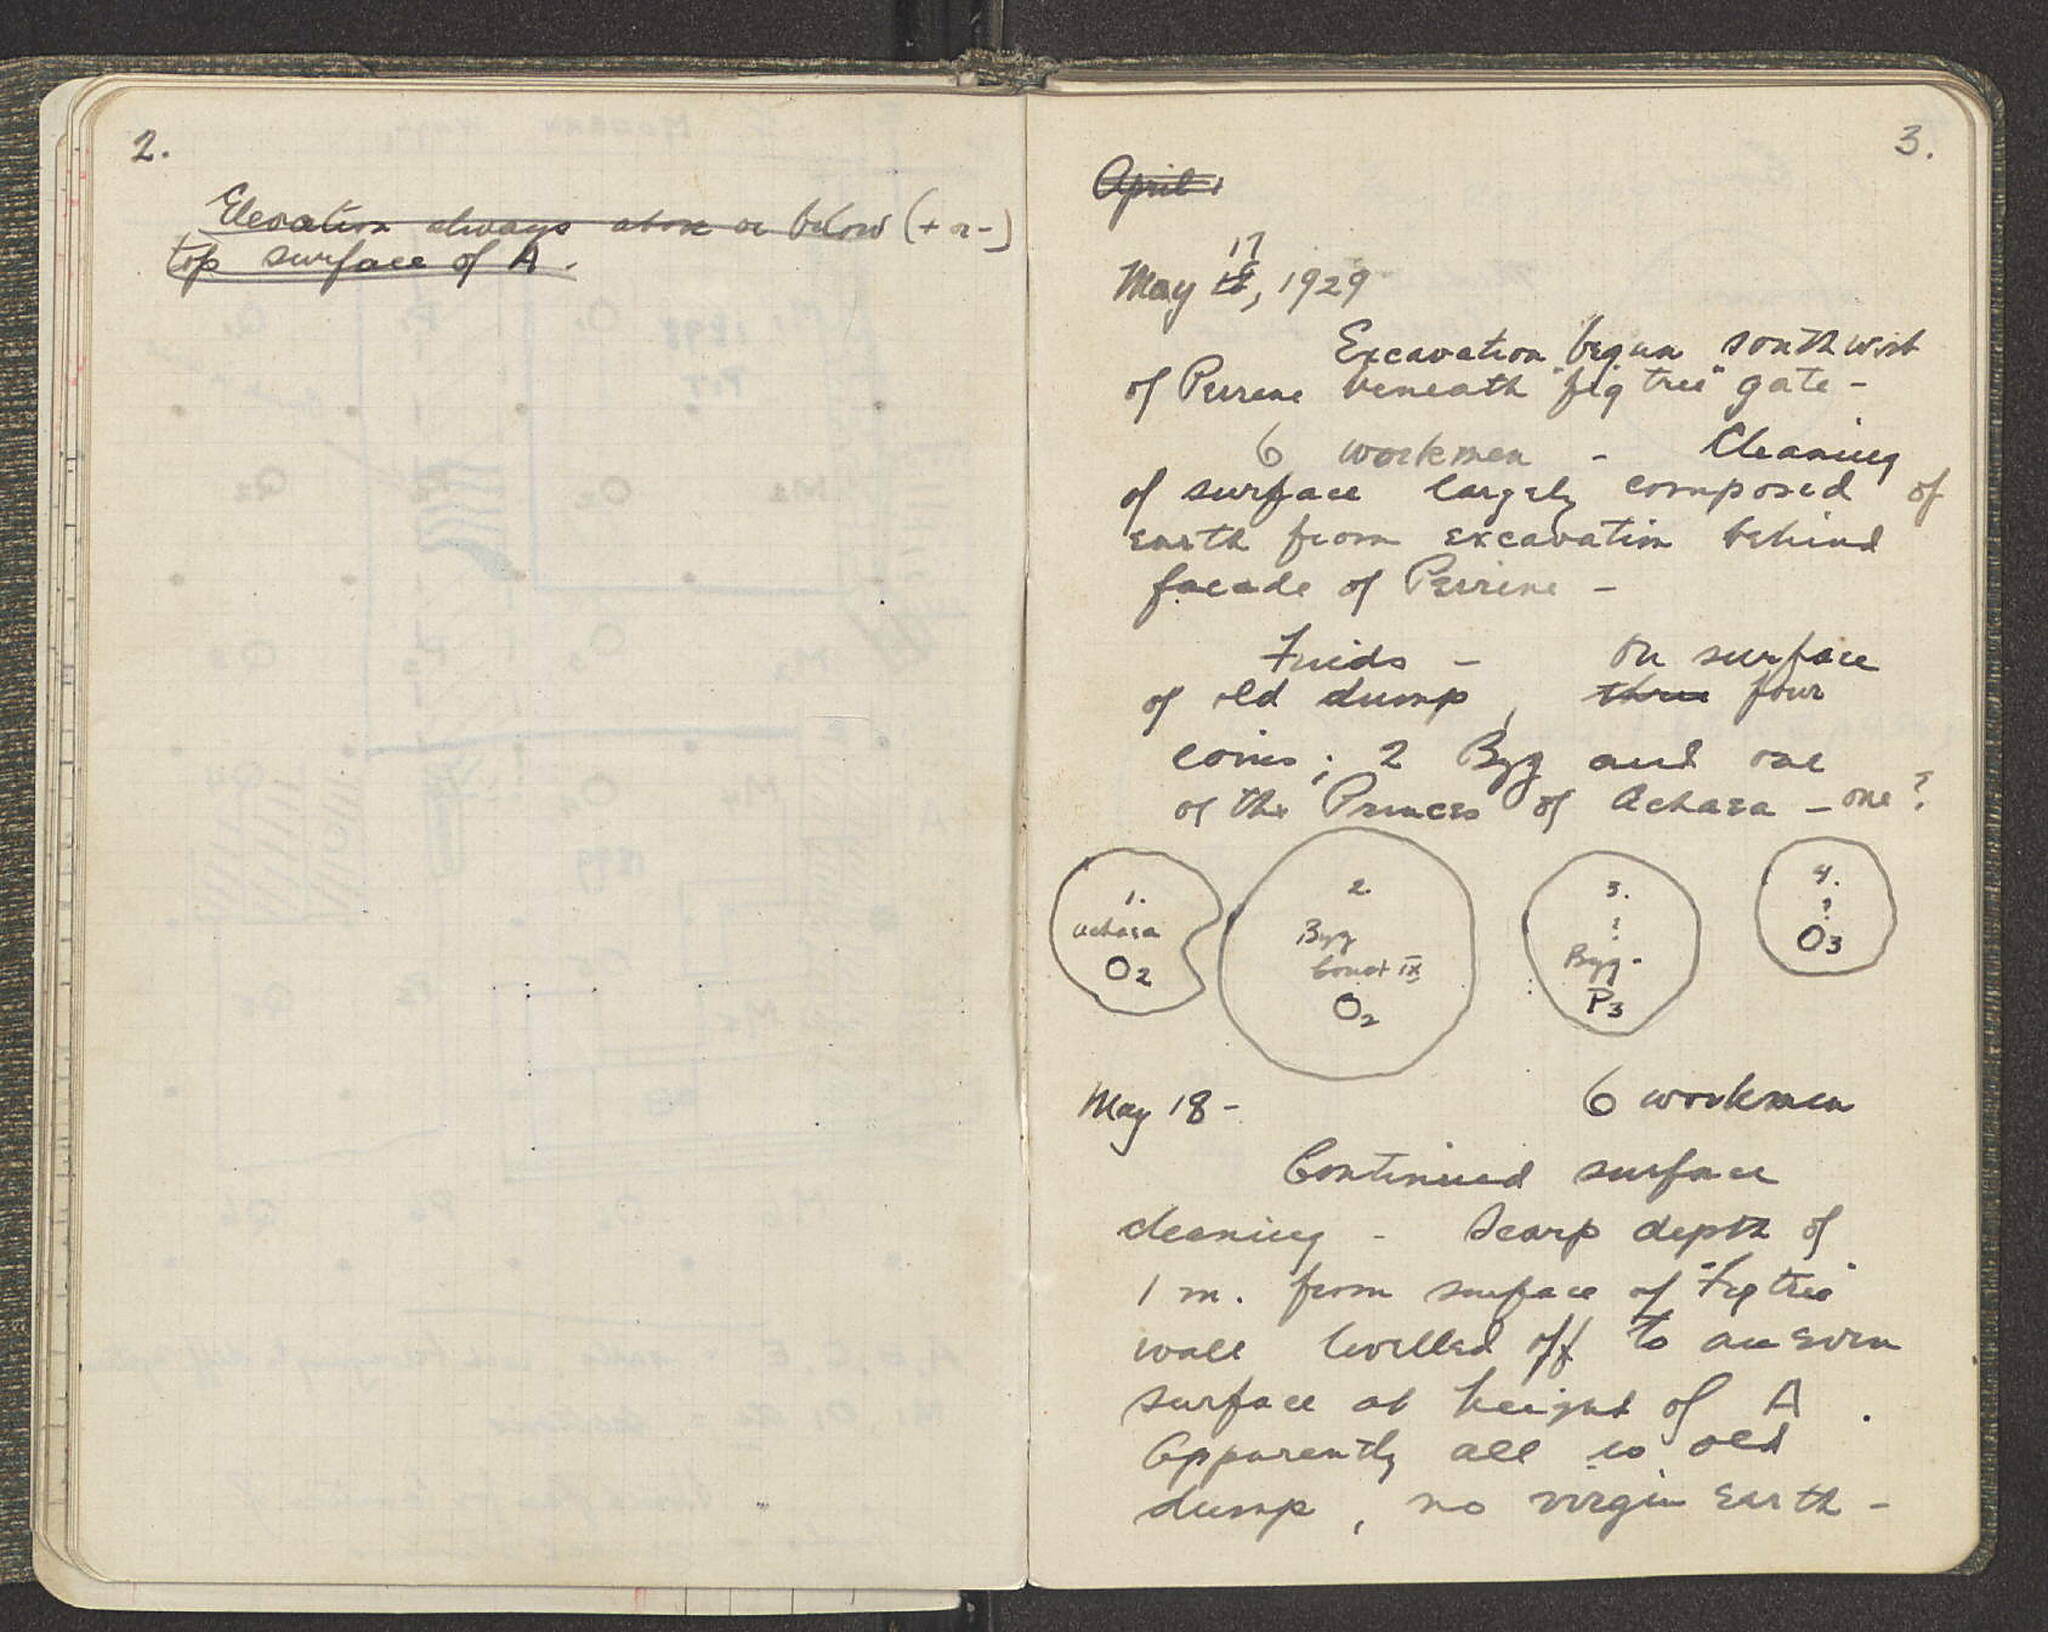 2.
Elevation always above or below (+ or -)
top surface of A.
3.
April 1
17
May 18, 1929
Excavation begun southwest
of Peirene beneath "fig tree" gate -
6 workmen - Cleaning
of surface largely composed of
earth from excavation behind
facade of Peirene -
Finds - on surface
of old dump, three four
coins; 2 Byz and one
of the Princes of Achaea - one?
1.
Achaea
O2
2.
Byz
Const IX
O2
3.
?
Byz -
P3
4.
?
O3
May 18 - 6 workmen
Continued surface
cleaning - Scarp depth of
1 m. from surface of "Fig tree"
wall levelled off to an even
surface at height of A.
Apparently all is old
dump, no virgin earth -